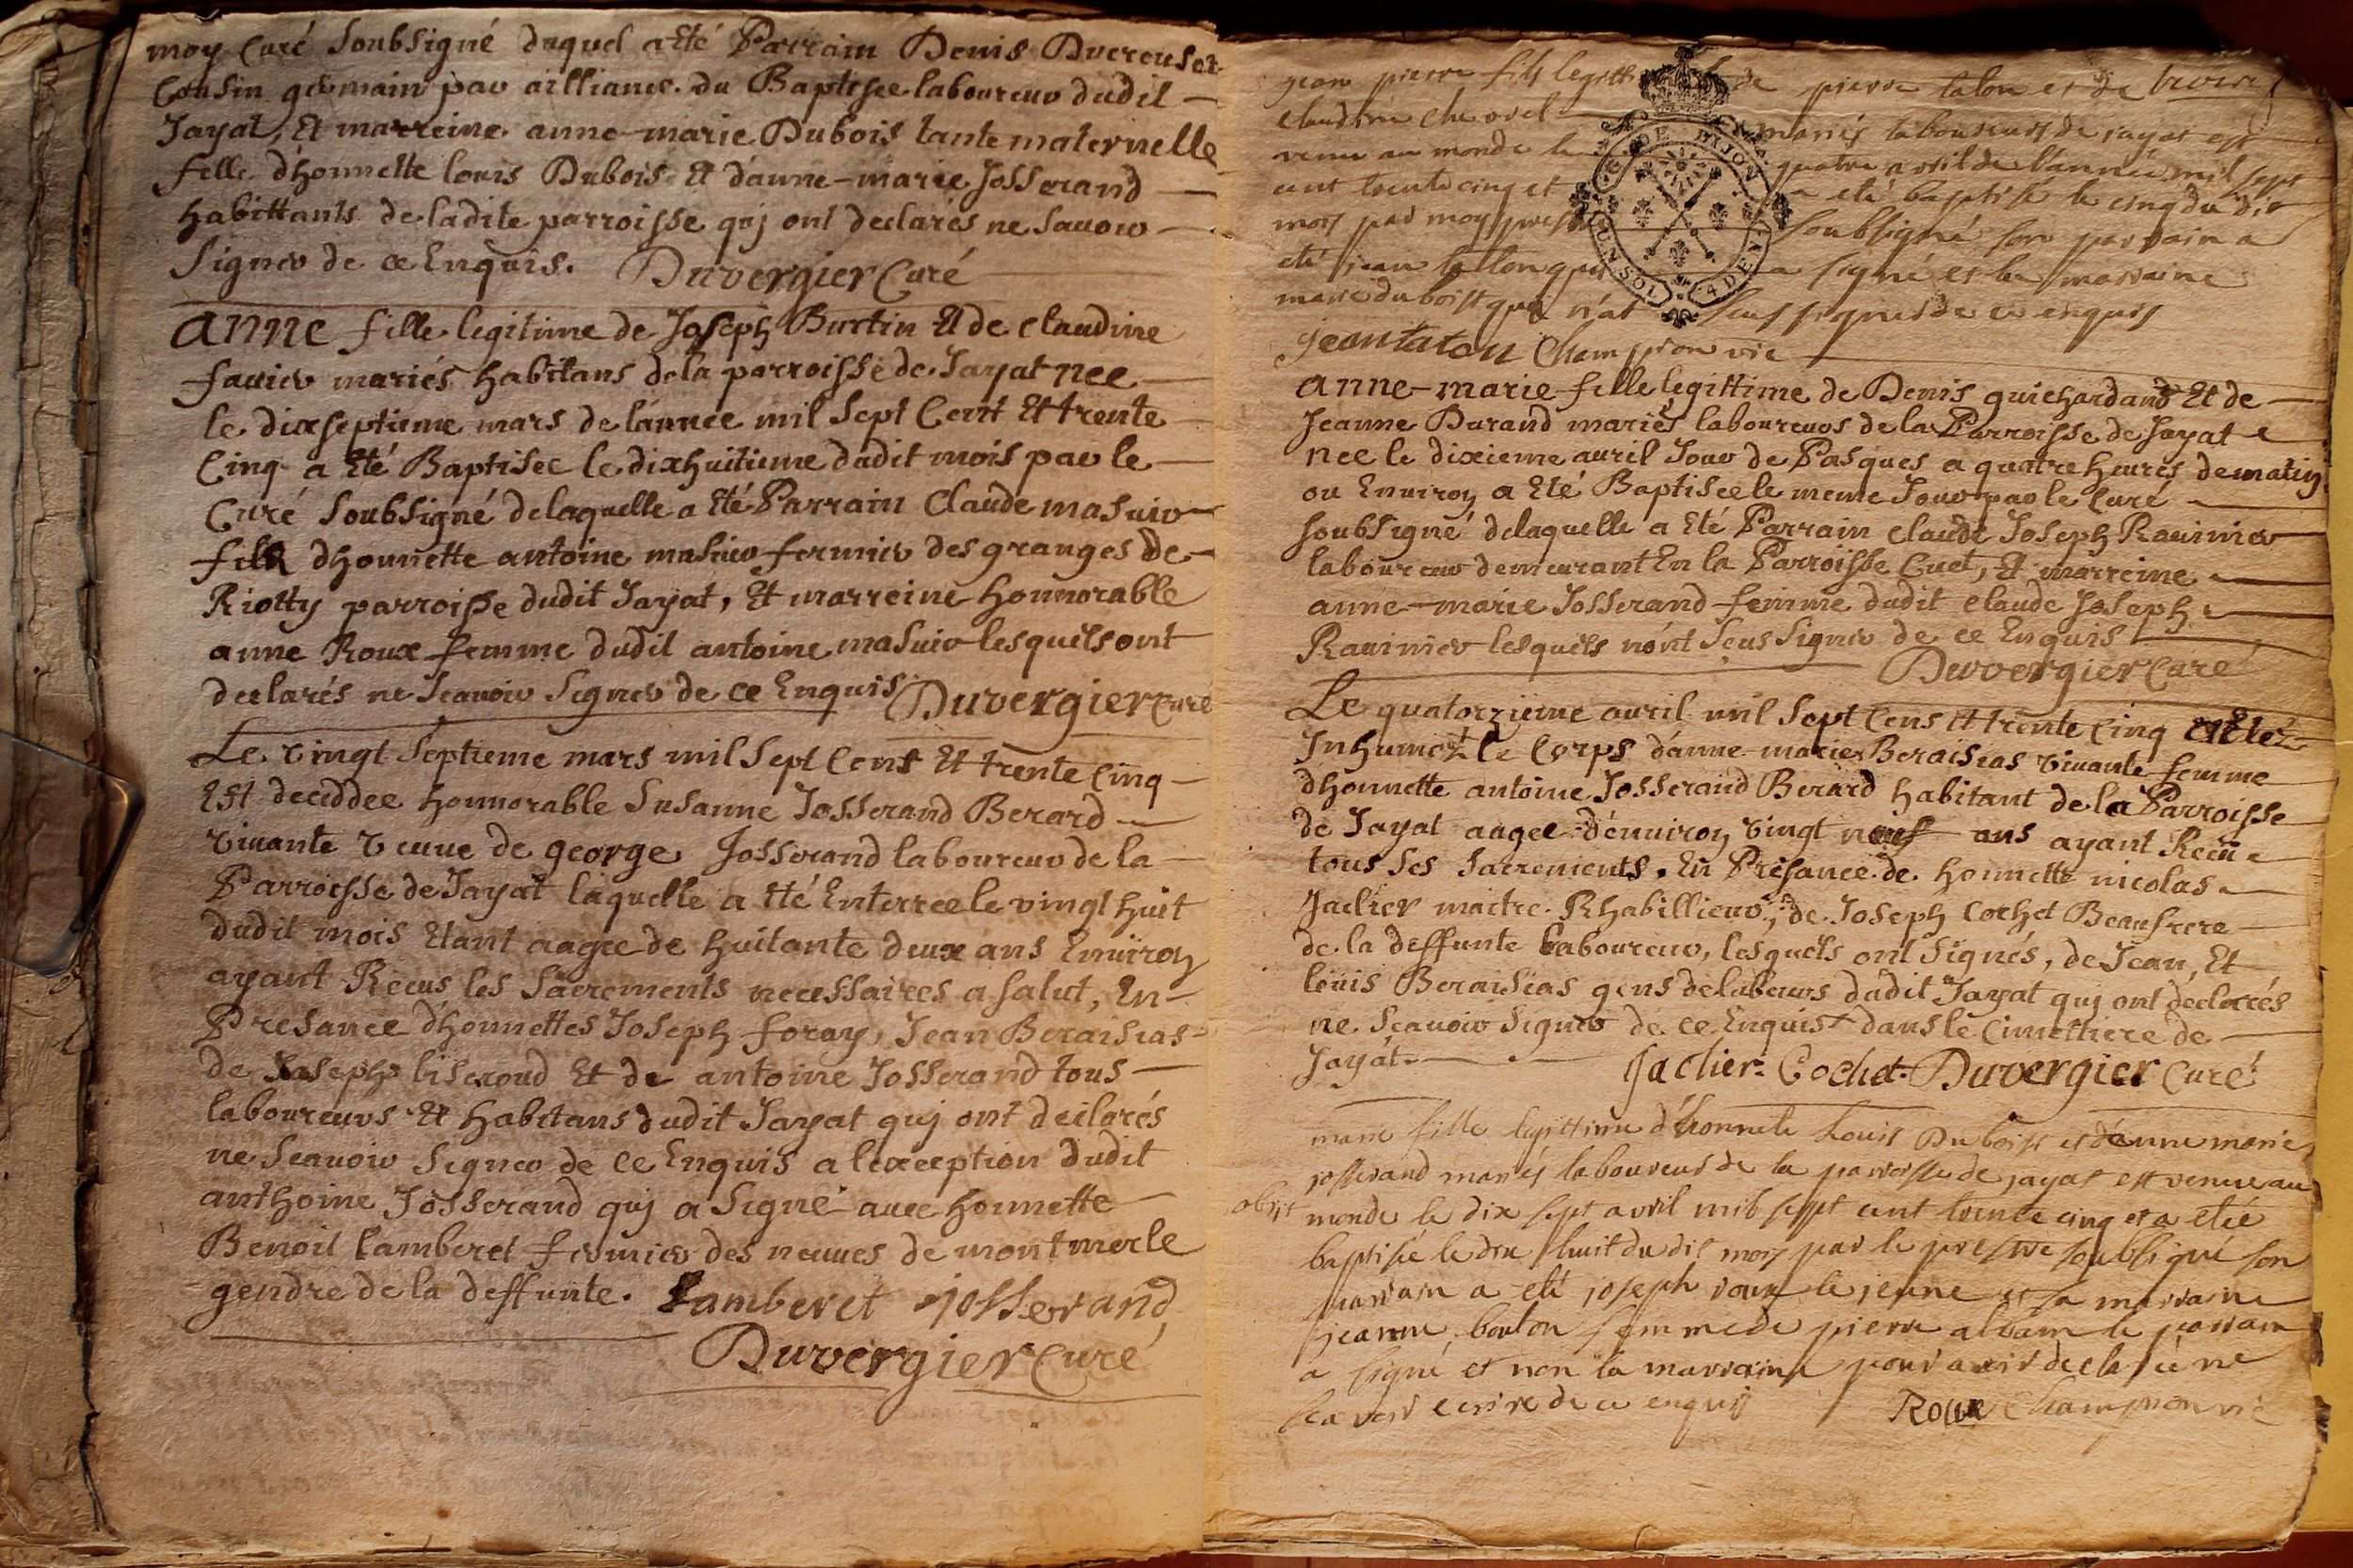 moy Curé Soubsigné duquel a Eté Parrain Denis Ducreuset
Cousin germain par ailliance du Baptisee laboureur dudit
Jayat, Et marreine anne-marie Dubois tante maternelle
fille d'honnette louis Dubois Et d'anne-marie Josserand
habittants de ladite parroisse qui ont declarés ne Sauoir
Signer de ce Enquis. Duvergier Curé
anne fille legitime de Joseph Burtin Et de claudine
fauier mariés habitans de la parroisse de Jayat nee
le dixseptieme mars de l'annee mil Sept Cent Et trente
Cinq a Eté Baptisee le dixhuitieme dudit mois par le
Curé Soubsigné de laquelle a Eté Parrain Claude masuir
fils d'honnette antoine masuir fermier des granges de
Riotty parroisse dudit Jayat, Et marreine honnorable
anne Roux femme dudit antoine masuir lesquels ont
declarés ne Sçauoir Signer de ce Enquis Duvergier Curé
Le vingt Septieme mars mil Sept Cens Et trente Cinq
Est deceddee honnorable Susanne Josserand Berard
viuante veuue de george Josserand laboureur de la
Parroisse de Jayat laquelle a Eté Enterree le vingt huit
dudit mois Etant aagee de huitante deux ans Enuiron
ayant Recus les Sacrements necessaires a salut, En
Presance d'honnettes Joseph foray, Jean Beraisias
de Joseph liseroud Et de antoine Josserand tous
laboureurs Et habitans dudit Jayat qui ont declarés
ne Sçauoir Signer de ce Enquis a l'exception dudit
anthoine Josserand qui a Signé auec honnette
Benoit lamberet fermier des neuues de montmerle
gendre de la deffunte. Lamberet josserand
Duvergier Curé
jean pierre fils legitti de pierre talon et de
claudine chevrel mariés laboureurs de jayat est
venu au monde le quatre avril de l'année mil sept
cent trente cinq et a eté baptisé le cinq du dit
mois par moy prestre soubsigné son parrain a
eté jean talon qui a signé et la marraine
marie duboist qui n'at sceu signer de ce enquis
jean talon Champion vic
anne-marie fille legittime de Denis guichardand Et de
Jeanne Durand mariés laboureurs de la Parroisse de Jayat
nee le dixieme auril Jour de Pasques a quatre heures de matin
ou Enuiron a Eté Baptisee le meme Jour par le Curé
soubsigné de laquelle a Eté Parrain claude Joseph Rauinier
laboureur demeurant En la Parroisse Cuet, Et marreine
anne-marie Josserand femme dudit claude Joseph
Rauinier lesquels n'ont Sçus Signer de ce Enquis
Duvergier Curé
Le quatorzieme auril mil Sept Cens et trente Cinq a Eté
Inhumez le Corps d'anne marie Beraisias viuante femme
d'honnette antoine Josserand Berard habitant de la Parroisse
de Jayat aagee d'enuiron vingt neuf ans ayant Recu
tous Ses Sacrements. En Presance de honnette nicolas
Jaclier maitre Rhabillieur, de Joseph Cochet Beaufrere
de la deffunte laboureur, lesquels ont Signés, de Jean, Et
louis Beraisias gens de labeurs dudit Jayat qui ont declarés
ne Sçauoir Signer de ce Enquis dans le Cimettiere de
Jayat.
Jaclier. Cochet. Duvergier Curé
marie fille legittime d'honnete Louis Duboist et d'anne marie
josserand mariés laboureur de la parroisse de jayat est venue au
obiit monde le dix sept avril mil sept cent trente cinq et a etée
baptisée le dix huit du dit mois par le prestre soubsigné son
parrain a eté joseph roux le jeune et sa marraine
jeanne bouton femme de pierre alban le parrain
a signé et non la marraine pour avoir declaré ne
sca voir ecrire de ce enquis Roux Champion vic
G. DE DIJON
UN SOL 4 DEN.